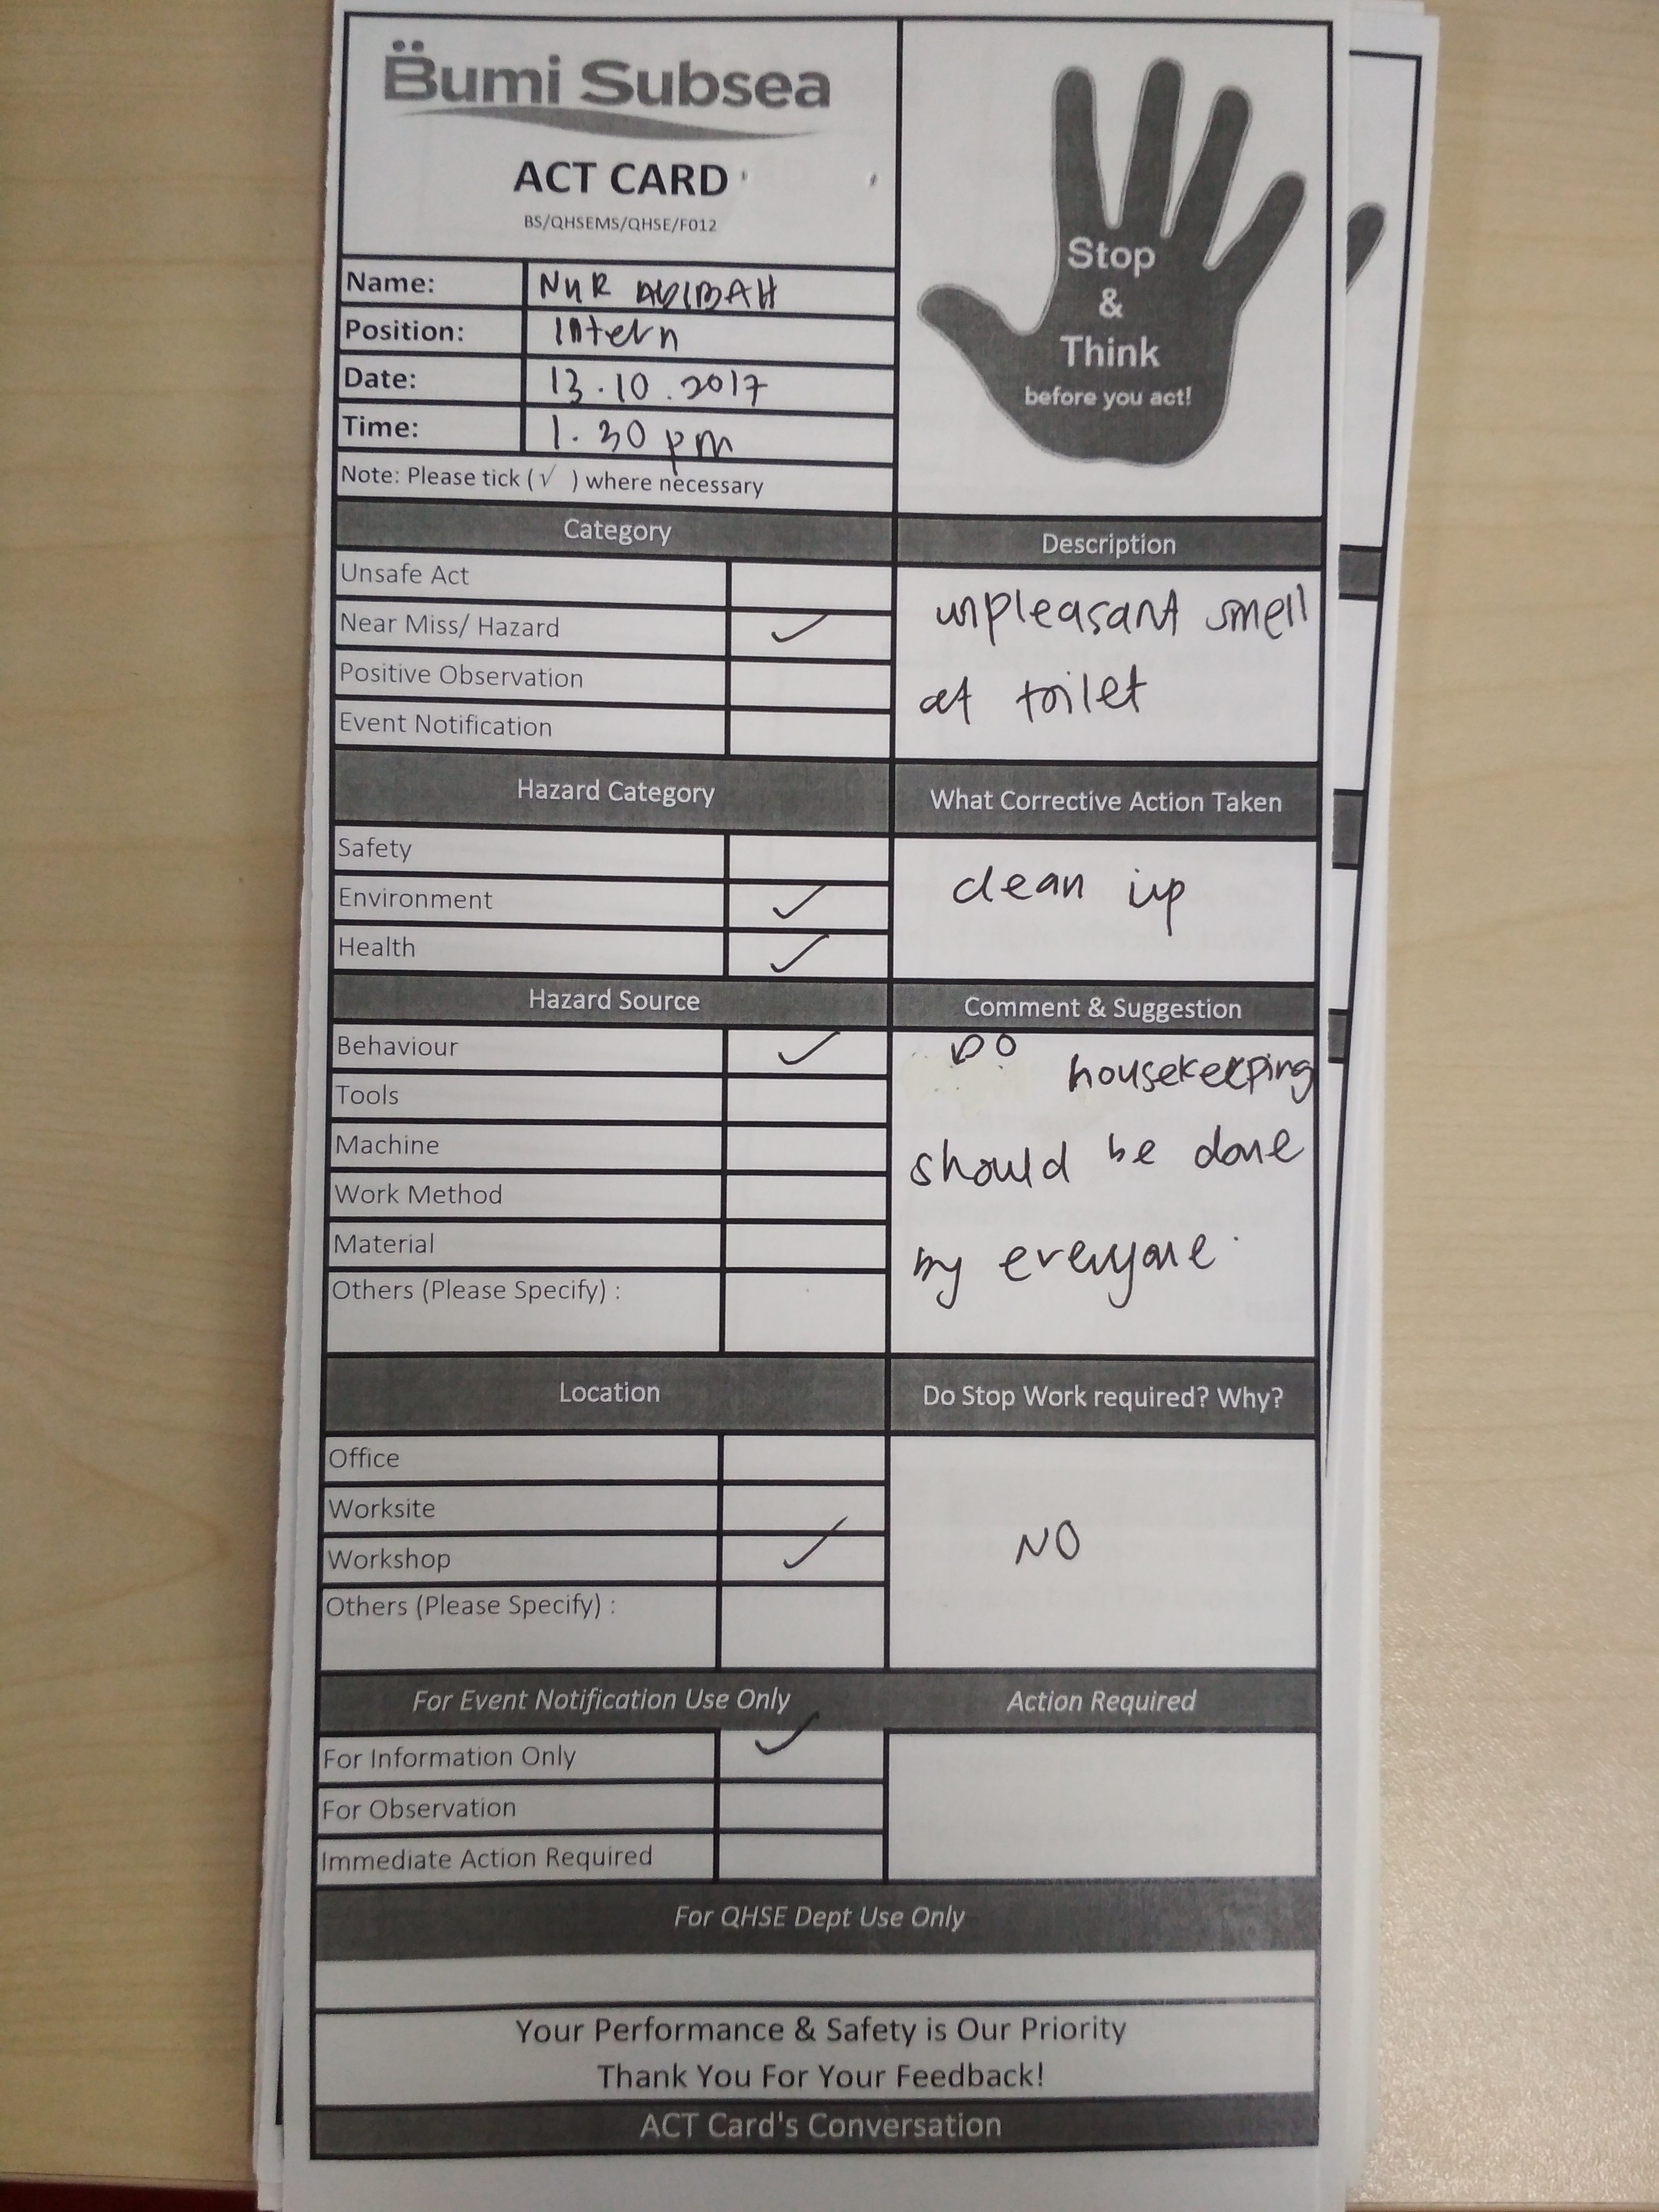 Bumi Subsea
ACT CARD
BS/QHSEMS/QHSE/F012
Stop
&
Think
before you act!
Name: NUR
Position: Intern
Date: 13.10.2017
Time: 1.30 pm
Note: Please tick (√ ) where necessary
Category
Unsafe Act
Near Miss/ Hazard ✓
Positive Observation
Event Notification
Description
unpleasant smell
at toilet
Hazard Category
Safety
Environment ✓
Health ✓
What Corrective Action Taken
clean up
Hazard Source
Behaviour ✓
Tools
Machine
Work Method
Material
Others (Please Specify) :
Comment & Suggestion
DO housekeeping
should be done
by everyone.
Location
Office
Worksite
Workshop ✓
Others (Please Specify) :
Do Stop Work required? Why?
NO
For Event Notification Use Only
For Information Only ✓
For Observation
Immediate Action Required
Action Required
For QHSE Dept Use Only
Your Performance & Safety is Our Priority
Thank You For Your Feedback!
ACT Card's Conversation